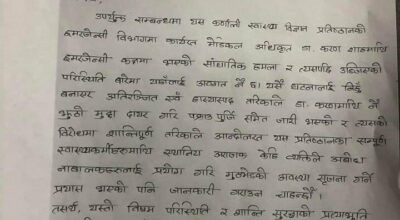 महोदय,
उपर्युक्त सम्बन्धमा यस कर्णाली स्वास्थ्य विज्ञान प्रतिष्ठानको
इमरजेन्सी विभागमा कार्यरत मेडिकल अधिकृत डा. करण शाहमाथि
इमरजेन्सी कक्षमा भएको सांघातिक हमला र त्यसपछि उब्जिएको
परिस्थिति बारेमा यहाँलाई अवगत नै छ। यसै घटनालाई
बनाएर अतिरञ्जित एवं हास्यास्पद तरिकाले डा. करणमाथि नै
झुठो मुद्दा दायर गरि पक्राउ पुर्जि समेत जारी भएको र त्यसको
विरोधमा शान्तिपूर्ण तरिकाले आन्दोलनरत यस प्रतिष्ठानका सम्पूर्ण
स्वास्थ्यकर्मीहरूमाथि स्थानिय अराजक केहि व्यक्तिले अबोध
नाबालकहरूलाई प्रयोग गरि मुठभेडको अवस्था सृजना गर्ने
प्रयास भएको पनि जानकारी गराउन चाहन्छौं ।
तसर्थ, यस्तो विषम परिस्थिति र शान्ति सुरक्षाको प्रत्याभूति